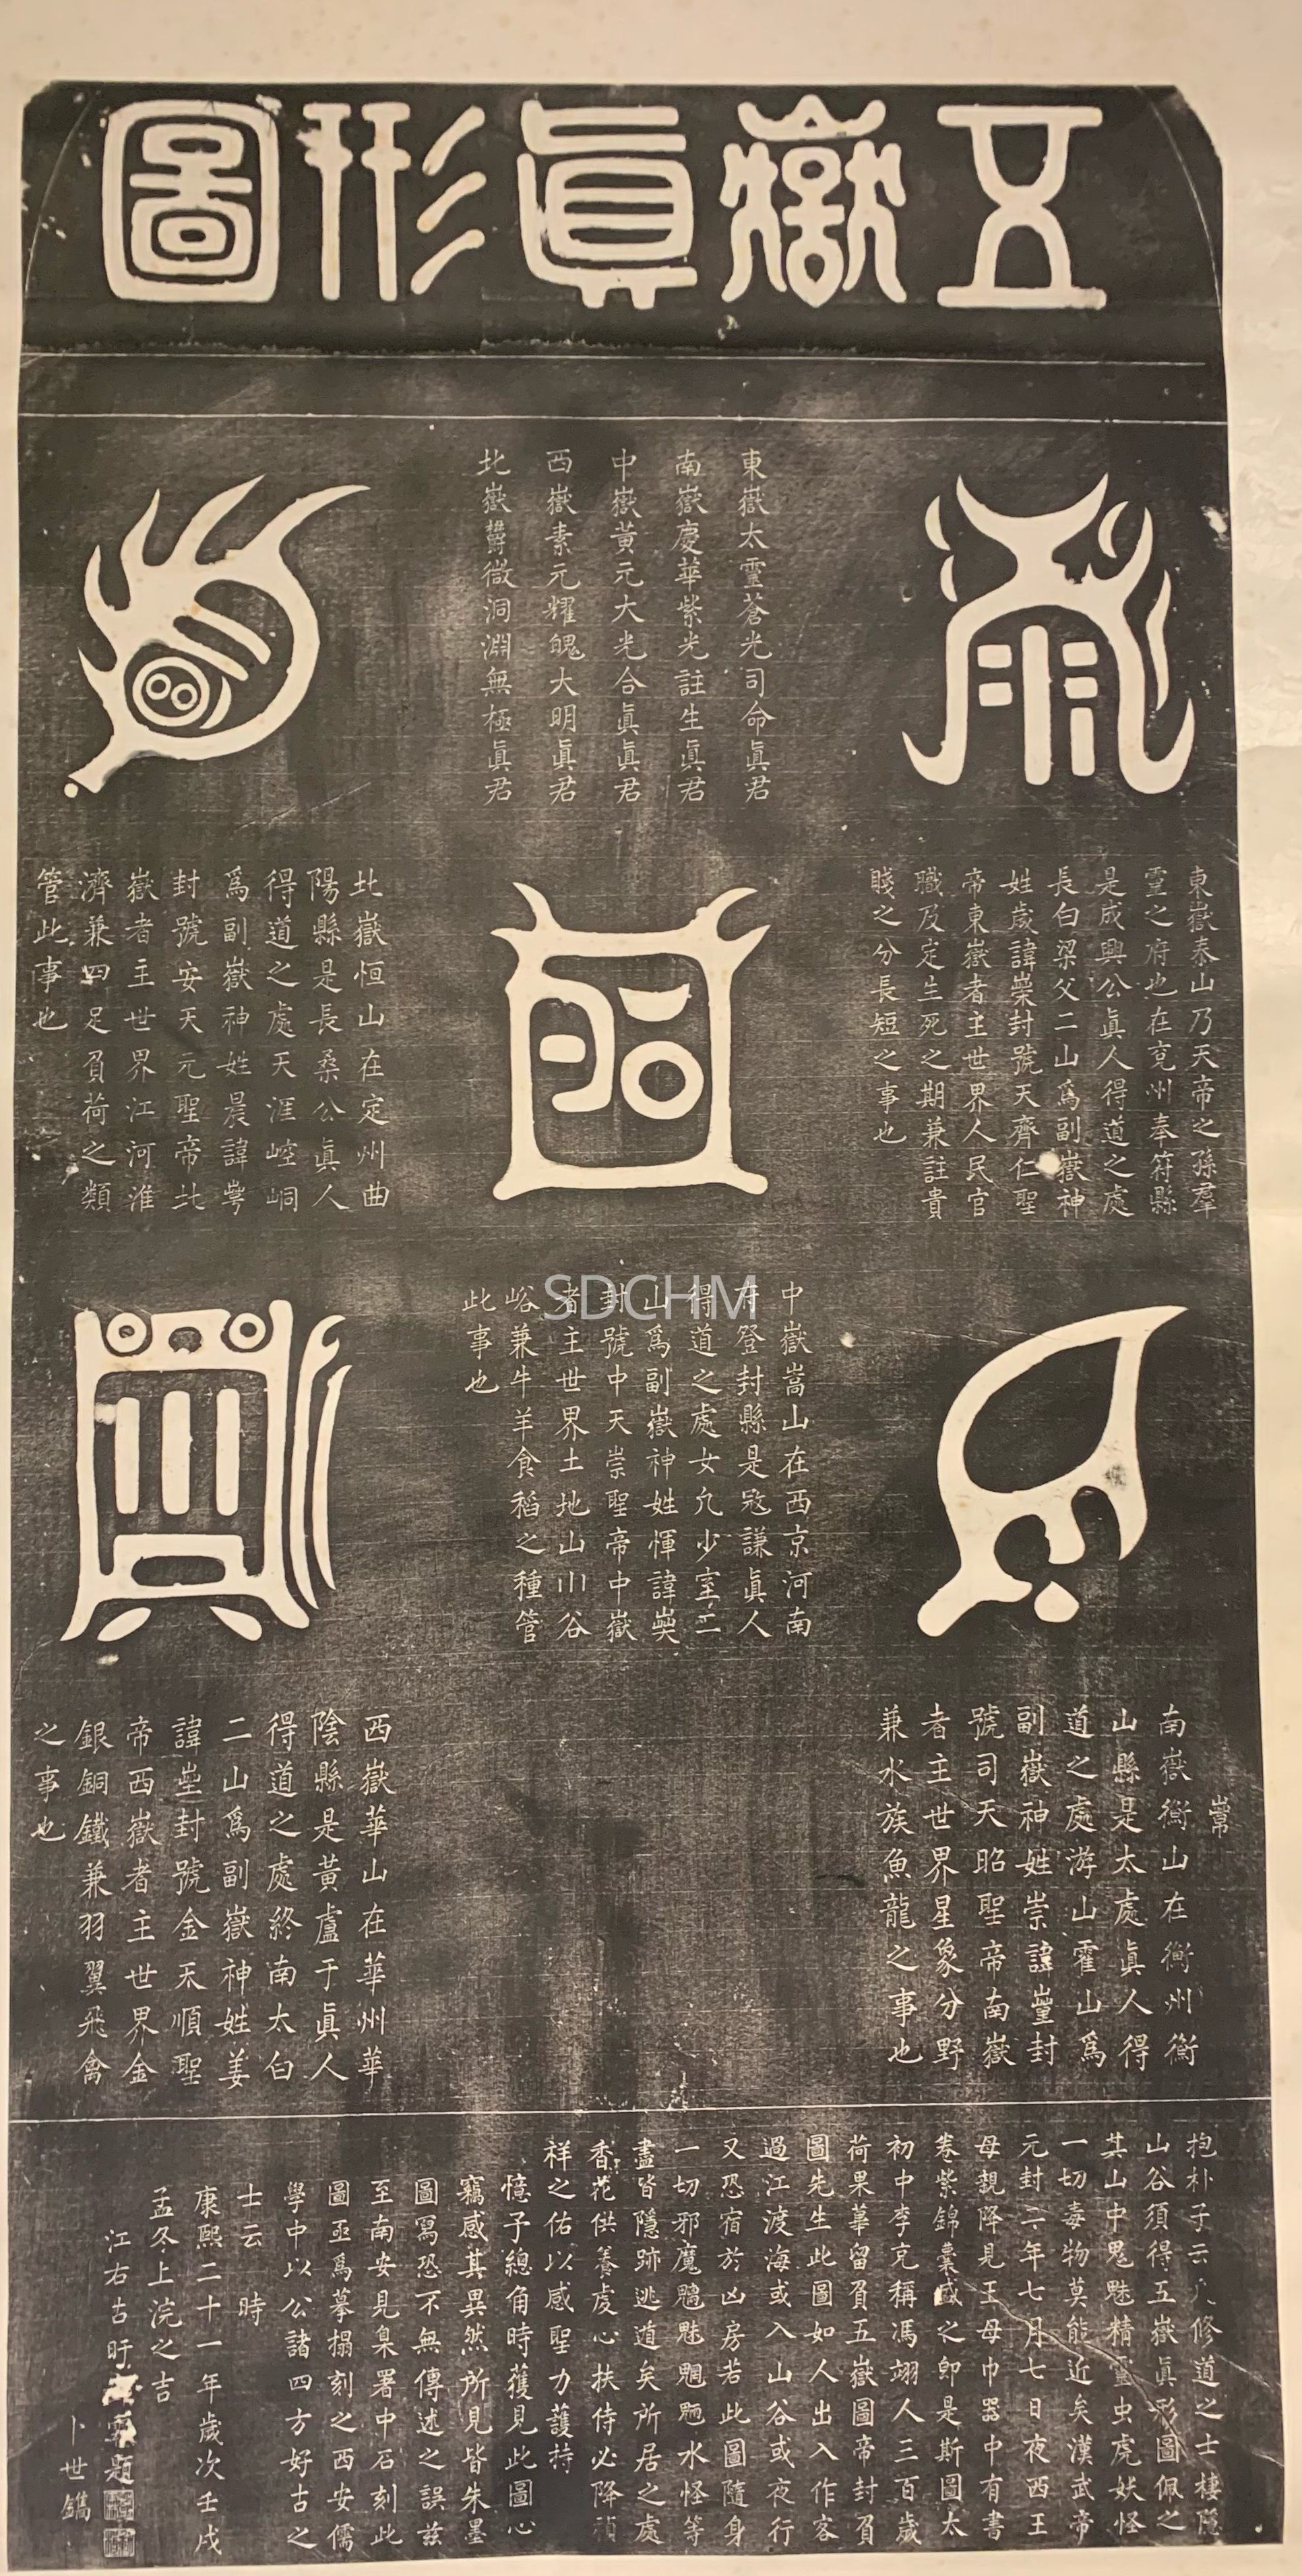 五嶽眞形圖
東嶽太靈蒼光司命眞君
南嶽慶華紫光註生眞君
中嶽黃元大光合眞眞君
西嶽素元耀魄大明眞君
北嶽鬱微洞淵無極眞君
東嶽泰山乃天帝之孫羣
靈之府也在兗州奉符縣
是成興公眞人得道之處
長白梁父二山爲副嶽神
姓歲諱崇封號天齊仁聖
帝東嶽者主世界人民官
職及定生死之期兼註貴
賤之分長短之事也
北嶽恒山在定州曲
陽縣是長桑公眞人
得道之處天涯崆峒
爲副嶽神姓晨諱
封號安天元聖帝北
嶽者主世界江河淮
濟兼四足負荷之類
管此事也
中嶽嵩山在西京河南
府登封縣是寇謙眞人
得道之處女几少室二
山爲副嶽神姓惲諱
封號中天崇聖帝中嶽
者主世界土地山川谷
峪兼牛羊食稻之種管
此事也
南嶽衡山在衡州衡
山縣是太處眞人得
道之處游山霍山爲
副嶽神姓崇諱封
號司天昭聖帝南嶽
者主世界星象分野
兼水族魚龍之事也
西嶽華山在華州華
陰縣是黃盧于眞人
得道之處終南太白
二山爲副嶽神姓姜
諱封號金天順聖
帝西嶽者主世界金
銀銅鐵兼羽翼飛禽
之事也
抱朴子云凡修道之士棲隱
山谷須得五嶽眞形圖佩之
其山中鬼魅精靈虫虎妖怪
一切毒物莫能近矣漢武帝
元封二年七月七日夜西王
母親降見王母巾器中有書
卷紫錦囊盛之卽是斯圖太
初中李充稱馮翊人三百歲
荷果蓽留負五嶽圖帝封負
圖先生此圖如人出入作客
過江渡海或入山谷或夜行
又恐宿於凶房若此圖隨身
一切邪魔魑魅魍魎水怪等
盡皆隱跡逃遁矣所居之處
香花供養虔心扶侍必降禎
祥之佑以感聖力護持
憶予總角時獲見此圖心
竊感其異然所見皆朱墨
圖寫恐不無傳述之誤茲
至南安見臬署中石刻此
圖亟爲摹搨刻之西安儒
學中以公諸四方好古之
士云 時
康熙二十一年歲次壬戌
孟冬上浣之吉
江右古盱題
卜世鐫
SDCHM